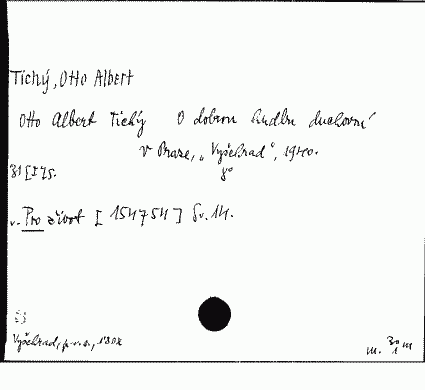 Tichý, Otto Albert
Otto Albert Tichý O dobrou hudbu duchovní
V Praze, „Vyšehrad", 1940.
31 [I] s. 8°
v. Pro život [154754] Sv. 14.
Vyšehrad,
m.